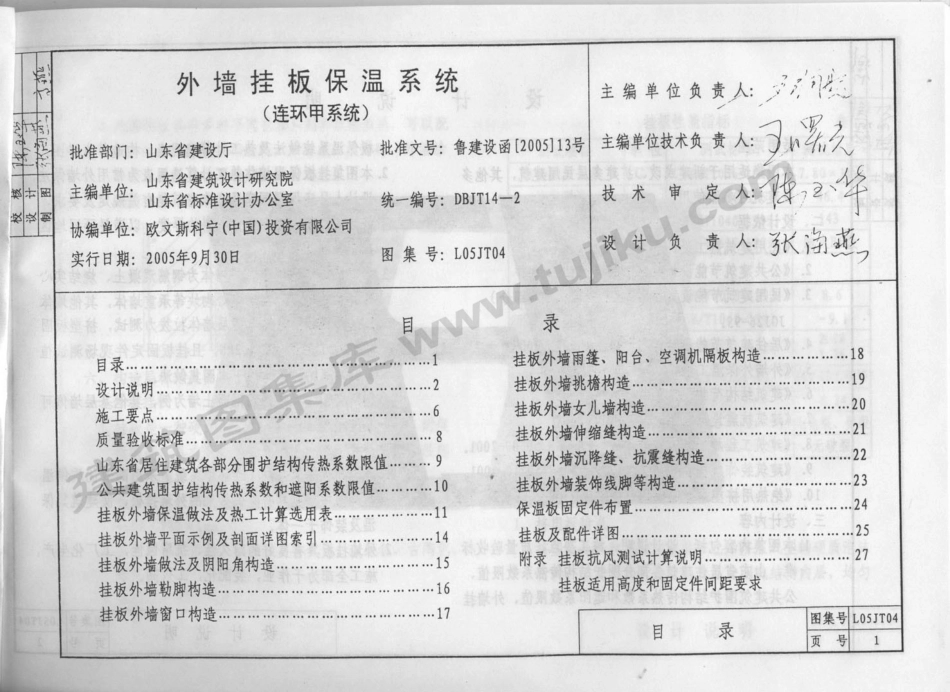 外墙挂板保温系统
（连环甲系统）
批准部门: 山东省建设厅
批准文号: 鲁建设函[2005]13号
主编单位: 山东省建筑设计研究院
山东省标准设计办公室
统一编号: DBJT14—2
协编单位: 欧文斯科宁(中国)投资有限公司
实行日期: 2005年9月30日
图 集 号: L05JT04
主编单位负责人:
主编单位技术负责人:
技术审定人:
设计负责人: 张海燕
校 核
设 计
制 图
目 录
目录 1
设计说明 2
施工要点 6
质量验收标准 8
山东省居住建筑各部分围护结构传热系数限值 9
公共建筑围护结构传热系数和遮阳系数限值 10
挂板外墙保温做法及热工计算选用表 11
挂板外墙平面示例及剖面详图索引 14
挂板外墙做法及阴阳角构造 15
挂板外墙勒脚构造 16
挂板外墙窗口构造 17
挂板外墙雨蓬、阳台、空调机隔板构造 18
挂板外墙挑檐构造 19
挂板外墙女儿墙构造 20
挂板外墙伸缩缝构造 21
挂板外墙沉降缝、抗震缝构造 22
挂板外墙装饰线脚等构造 23
保温板固定件布置 24
挂板及配件详图 25
附录 挂板抗风测试计算说明 27
挂板适用高度和固定件间距要求
目 录
图集号 L05JT04
页 号 1
建筑图集库 www.tujiku.com